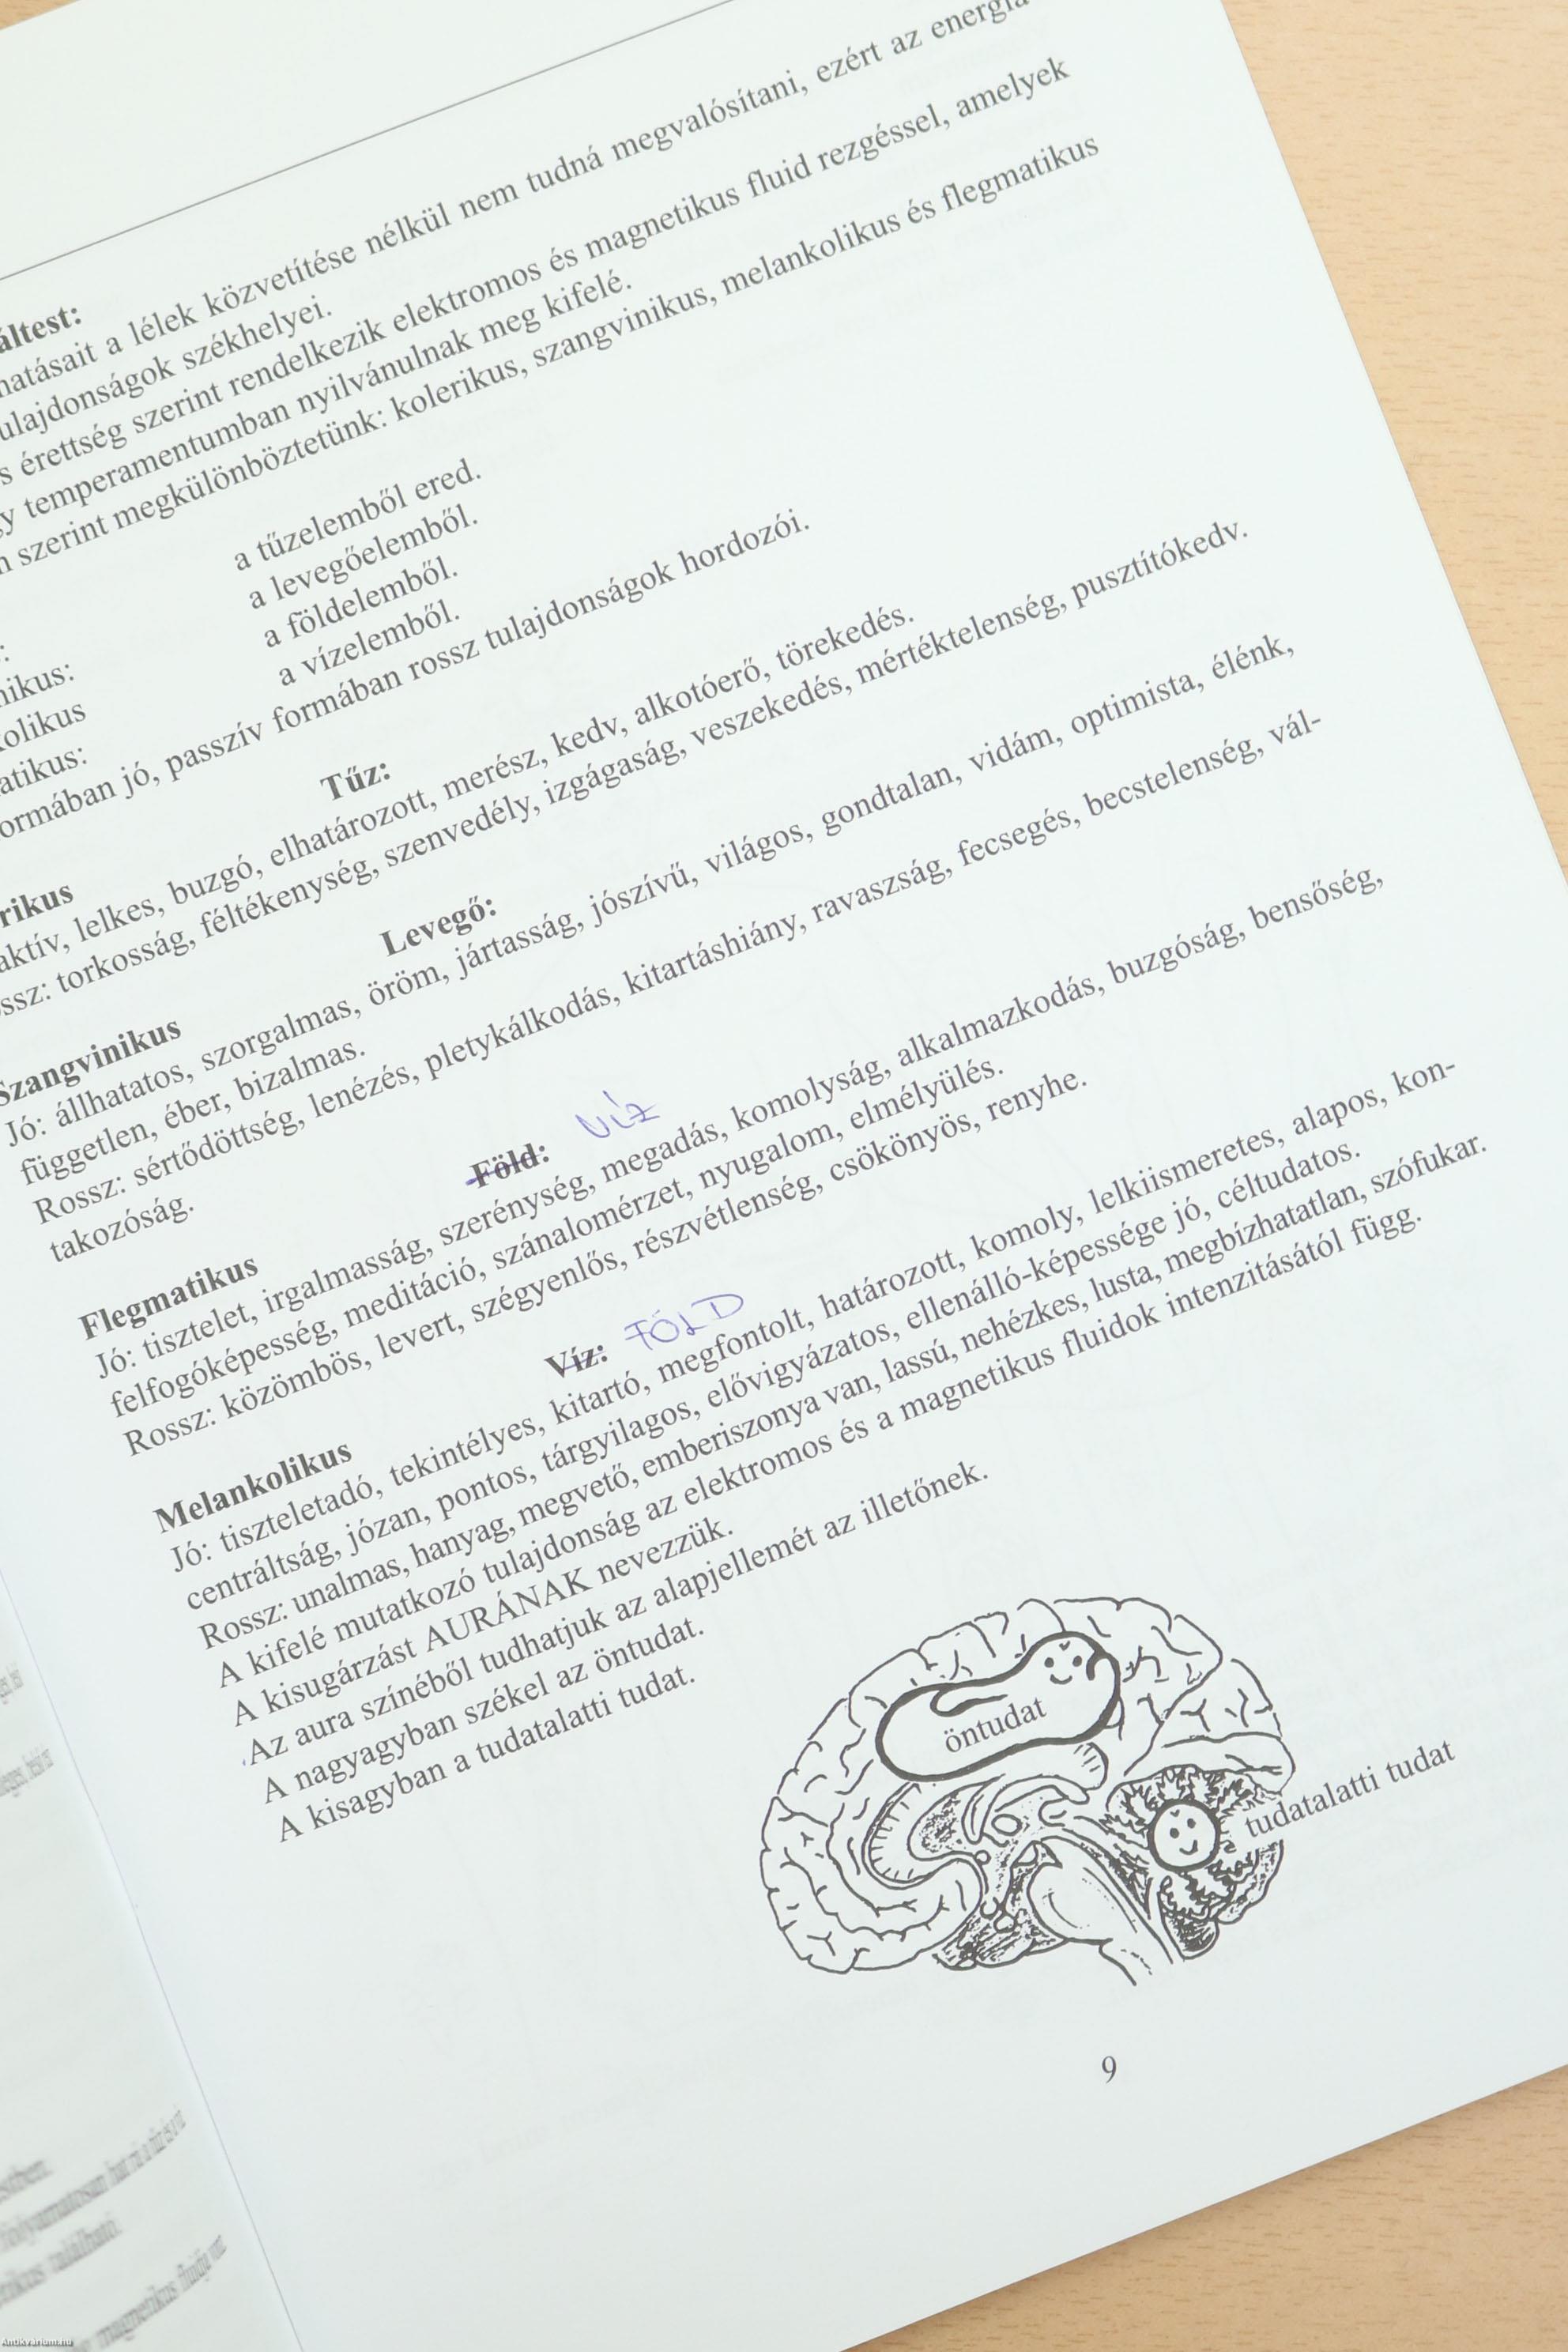 megvalósítani, ezért az energia
áltest:
hatásait a lélek közvetítése nélkül nem tudná
tulajdonságok székhelyei.
s érettség szerint rendelkezik elektromos és magnetikus fluid rezgéssel, amelyek
temperamentumban nyilvánulnak meg kifelé.
szerint megkülönböztetünk: kolerikus, szangvinikus, melankolikus és flegmatikus
a tűzelemből ered.
nikus: a levegőelemből.
kolikus a földelemből.
atikus: a vízelemből.
formában jó, passzív formában rossz tulajdonságok hordozói.
Tűz:
rikus
aktív, lelkes, buzgó, elhatározott, merész, kedv, alkotóerő, törekedés.
ssz: torkosság, féltékenység, szenvedély, izgágaság, veszekedés, mértéktelenség, pusztítókedv.
Levegő:
Szangvinikus
Jó: állhatatos, szorgalmas, öröm, jártasság, jószívű, világos, gondtalan, vidám, optimista, élénk,
független, éber, bizalmas.
Rossz: sértődöttség, lenézés, pletykálkodás, kitartáshiány, ravaszság, fecsegés, becstelenség, vál-
takozóság.
Föld: VÍZ
Flegmatikus
Jó: tisztelet, irgalmasság, szerénység, megadás, komolyság, alkalmazkodás, buzgóság, bensőség,
felfogóképesség, meditáció, szánalomérzet, nyugalom, elmélyülés.
Rossz: közömbös, levert, szégyenlős, részvétlenség, csökönyös, renyhe.
Víz: FÖLD
Melankolikus
Jó: tiszteletadó, tekintélyes, kitartó, megfontolt, határozott, komoly, lelkiismeretes, alapos, kon-
centráltság, józan, pontos, tárgyilagos, elővigyázatos, ellenálló-képessége jó, céltudatos.
Rossz: unalmas, hanyag, megvető, emberiszonya van, lassú, nehézkes, lusta, megbízhatatlan, szófukar.
A kifelé mutatkozó tulajdonság az elektromos és a magnetikus fluidok intenzitásától függ.
A kisugárzást AURÁNAK nevezzük.
Az aura színéből tudhatjuk az alapjellemét az illetőnek.
A nagyagyban székel az öntudat.
A kisagyban a tudatalatti tudat.
öntudat
tudatalatti tudat
9
magnetikus fluidja
Antikvarium.hu